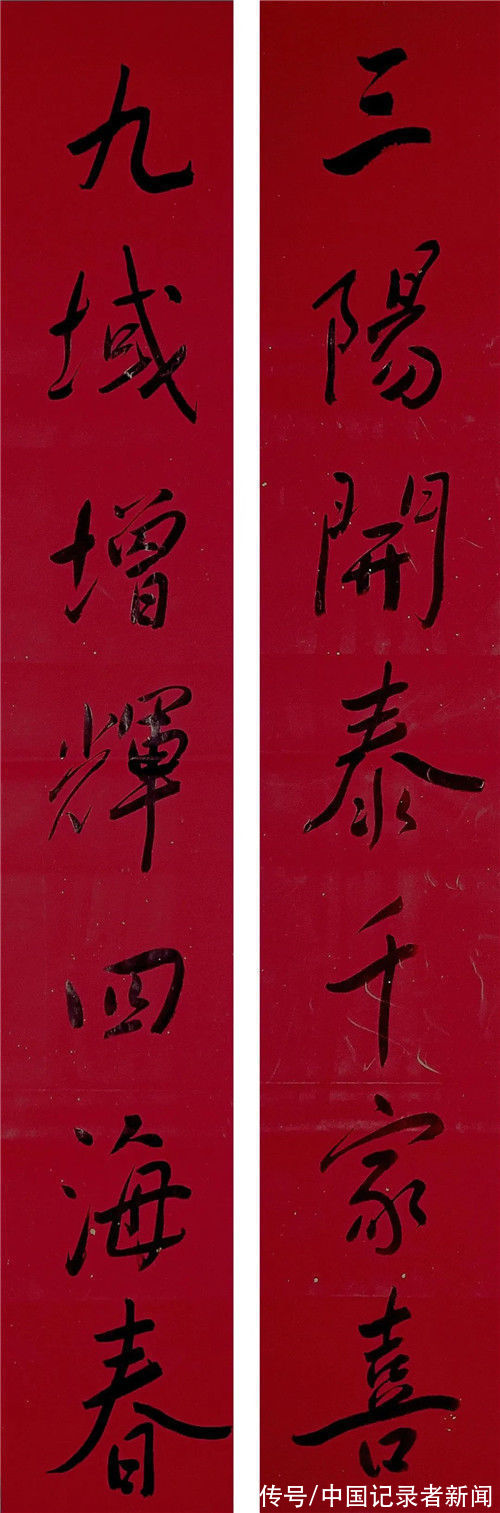 三陽開泰千家喜
九域增輝四海春
传号/中国记录者新闻